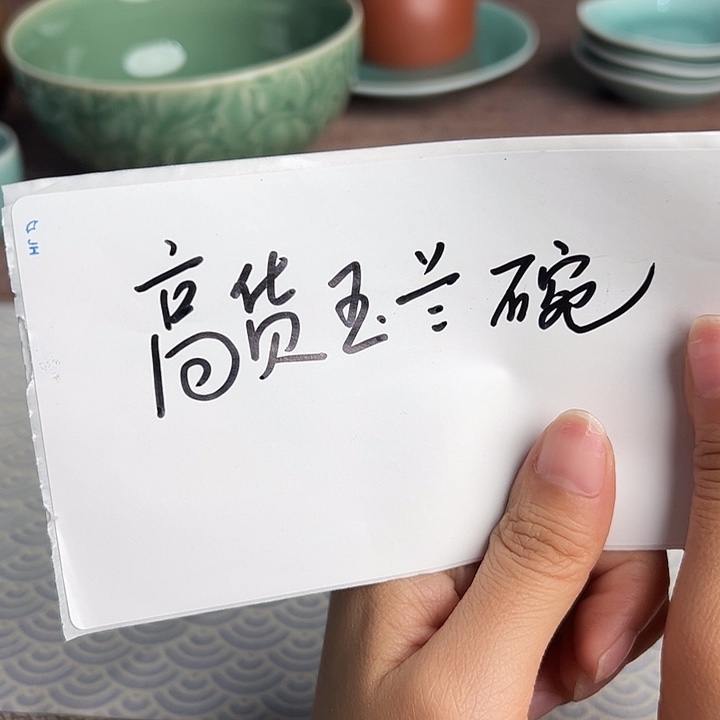 高货玉兰碗
JH